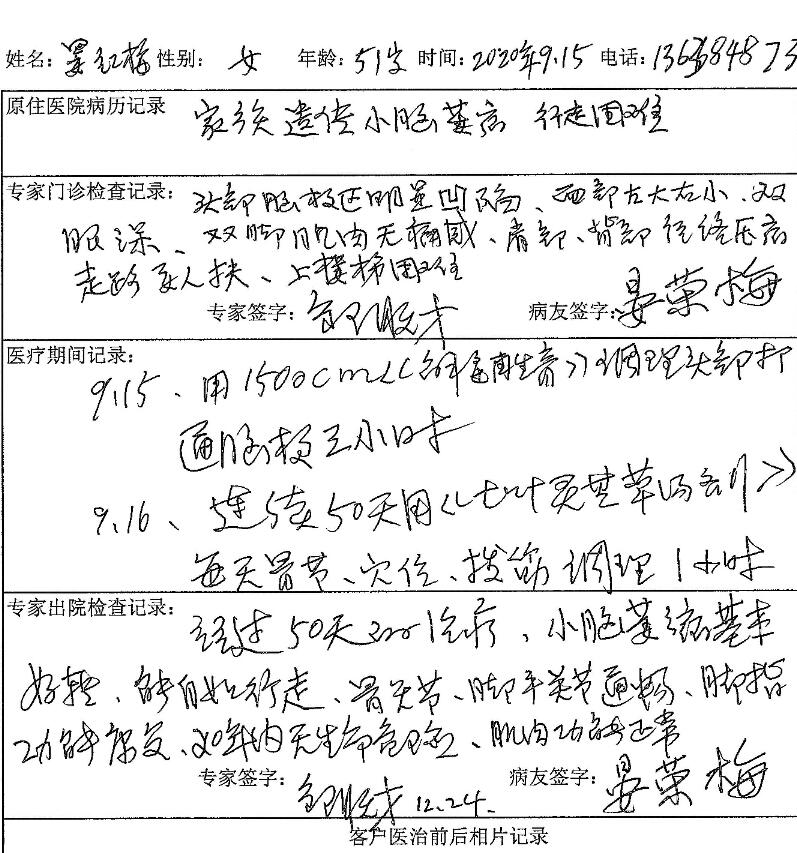 姓名：晏红梅 性别：女 年龄：51岁 时间：2020年9.15 电话：
原住医院病历记录 家族遗传小脑萎病 行走困难
专家门诊检查记录：头部脑校区明显凹陷、面部左大右小、双
眼深、双脚肌肉无痛感、肩部、背部经络压病
走路要人扶、上楼梯困难
专家签字： 病友签字：晏荣梅
医疗期间记录：
9.15、用1500cm 调理头部打
通脑校三小时
9.16、连续50天用《七叶灵芝草 》
每天骨节、穴位、拨筋调理1小时
专家出院检查记录：
经过50天 治疗、小脑萎缩基本
好转、能自如行走、骨关节、脚手关节通畅、脚指
功能康复、20年内无生命危险、肌肉功能正常
专家签字： 12.24. 病友签字：晏荣梅
客户医治前后相片记录